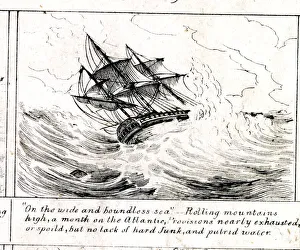 "On the wide and boundless sea."—Rolling mountains
high, a month on the Atlantic, Provisions nearly exhausted,
or spoild, but no lack of hard Junk, and putrid water.